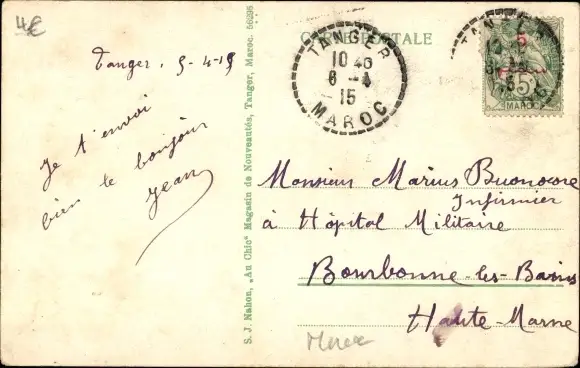 4€
CARTE POSTALE
Tanger, 5-4-15
Je t'envoi
bien le bonjour
Jean
S. J. Nahon, „Au Chic" Magasin de Nouveautés, Tanger, Maroc. 56295
TANGER
10 45
6 -4
15
MAROC
TANGER
10
5
5
MAROC
Monsieur Marius Buonocore
Infirmier
à Hôpital Militaire
Bourbonne-les-Bains
Haute-Marne